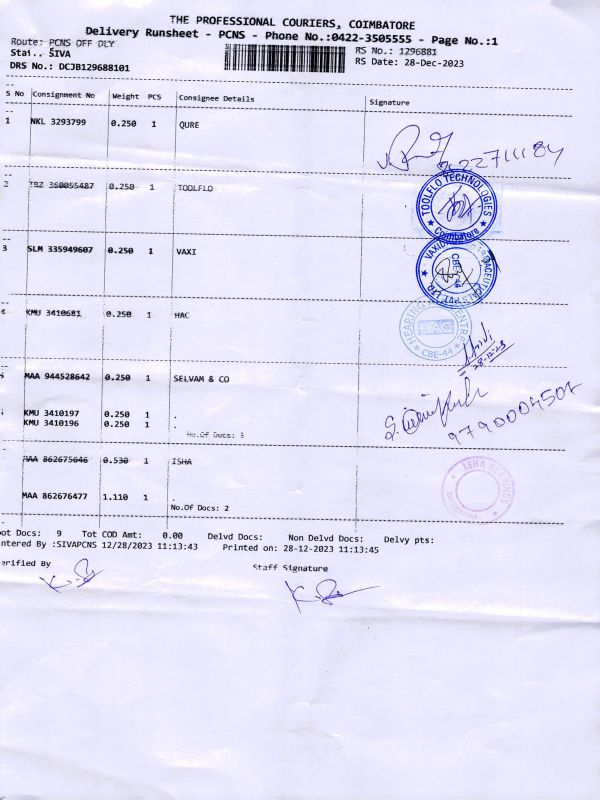 THE PROFESSIONAL COURIERS, COIMBATORE
Delivery Runsheet - PCNS - Phone No.:0422-3505555 - Page No.:1
Route: PCNS OFF DLY RS No.: 1296881
SIVA RS Date: 28-Dec-2023
DRS No.: DCJB129688101
S No Consignment No Weight PCS Consignee Details Signature
1 NKL 3293799 0.250 1 QURE
2 360055487 0.250 1 TOOLFLO
TOOLFLO TECHNOLOGIES
Coimbatore
3 SLM 335949607 0.250 1 VAXI
PVT LTD
4 KMU 3410681 0.250 1 HAC
HEARING CENTRE
HAC
CBE-44
28-12-23
MAA 944528642 0.250 1 SELVAM & CO
KMU 3410197 0.250 1 .
KMU 3410196 0.250 1 .
No.Of Docs: 3
9790004507
MAA 862675646 0.530 1 ISHA
ISHA
MAA 862676477 1.110 1 .
No.Of Docs: 2
Docs: 9 Tot COD Amt: 0.00 Delvd Docs: Non Delvd Docs: Delvy pts:
ntered By :SIVAPCNS 12/28/2023 11:13:43 Printed on: 28-12-2023 11:13:45
erified By Staff Signature